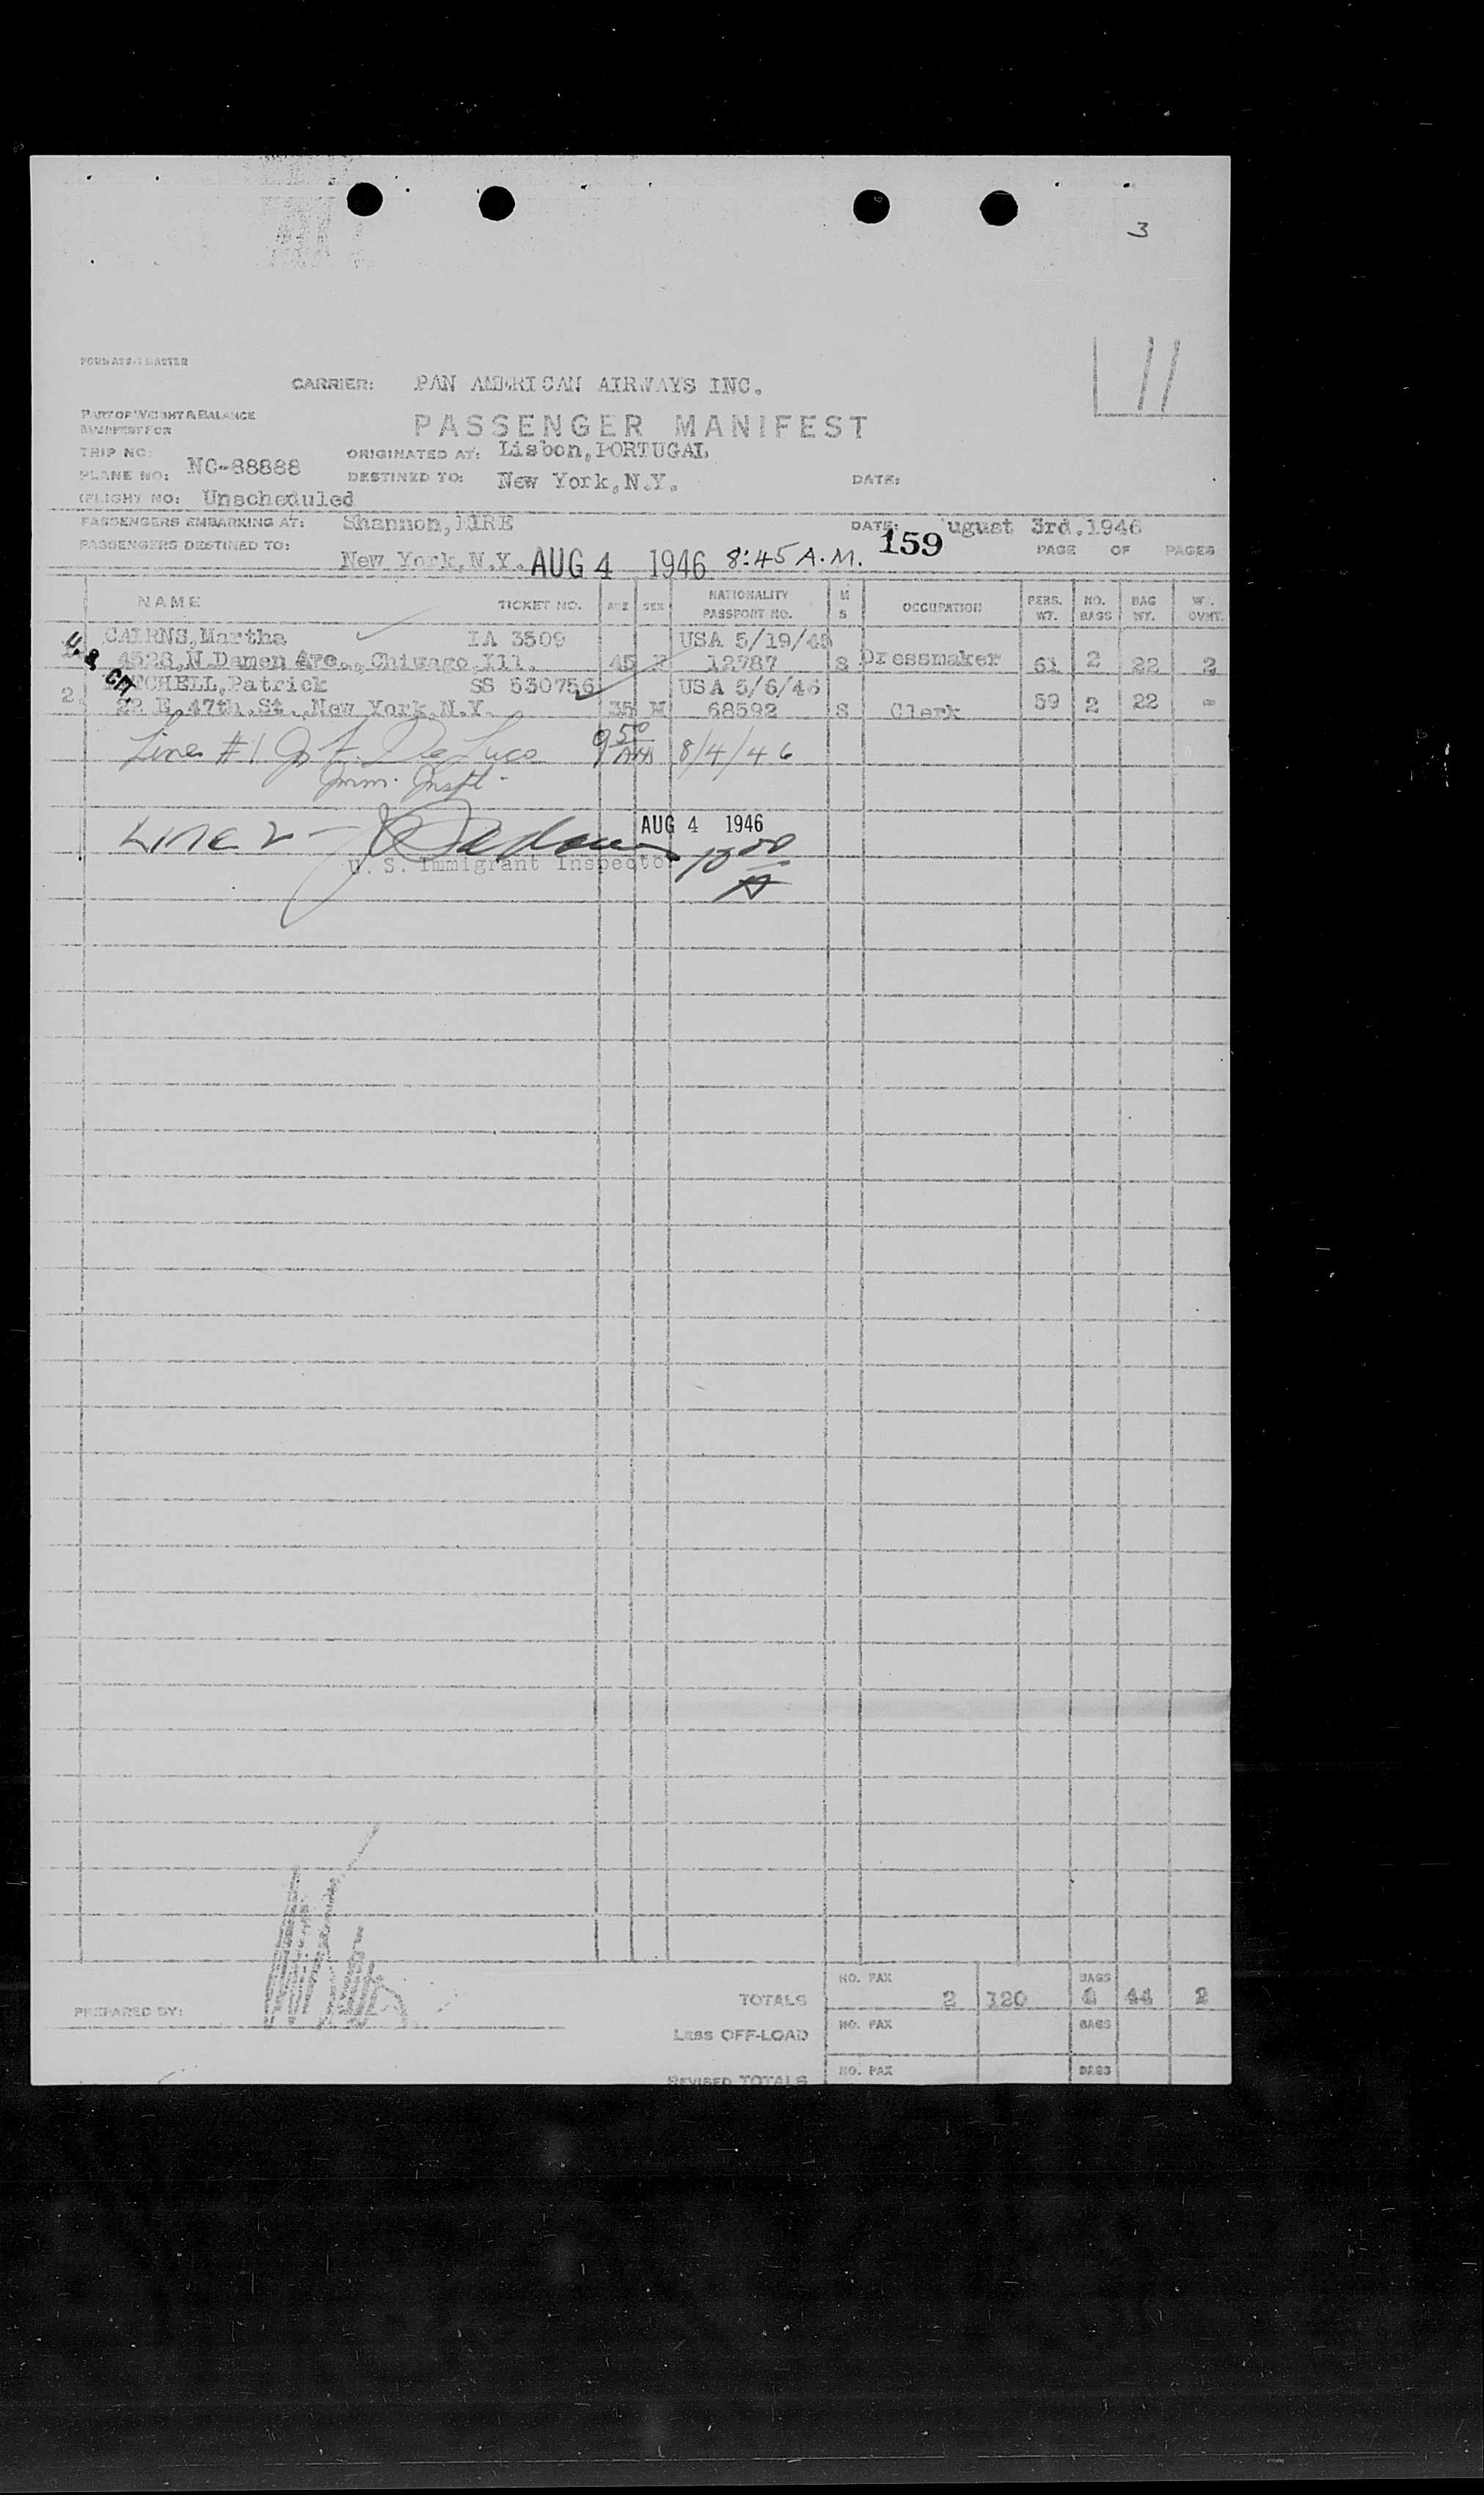 3
11
CARRIER: PAN AMERICAN AIRWAYS INC.
PART OF WEIGHT & BALANCE
MANIFEST FOR
PASSENGER MANIFEST
TRIP NO: ORIGINATED AT: Lisbon, PORTUGAL
PLANE NO: NC-88888 DESTINED TO: New York, N.Y. DATE:
(FLIGHT NO: Unscheduled
PASSENGERS EMBARKING AT: Shannon, EIRE DATE: ugust 3rd, 1946
PASSENGERS DESTINED TO: 159 PAGE OF PAGES
New York, N.Y. AUG 4 1946 8:45 A.M.
NAME TICKET NO. AGE SEX NATIONALITY PASSPORT NO. M S OCCUPATION PERS. WT. NO. BAGS BAG WT. WT. OVHT.
U.S. CIT.
CAIRNS, Martha IA 3509 USA 5/19/45
4528, N. Damen Ave., Chiwago, Ill. 45 F 12787 S Dressmaker 61 2 22 2
2. Patrick SS 530756 USA 5/6/46
22 E. 47th. St., New York, N.Y. 35 M 68592 S Clerk 59 2 22 -
Line #1 De Luca 9 50 AM 8/4/46
Imm. Inspt.
Line 2 - AUG 4 1946
U. S. Immigrant Inspector 10 00 A
TOTALS NO. PAX 2 120 BAGS 4 44 2
PREPARED BY:
LESS OFF-LOAD NO. PAX BAGS
REVISED TOTALS NO. PAX BAGS